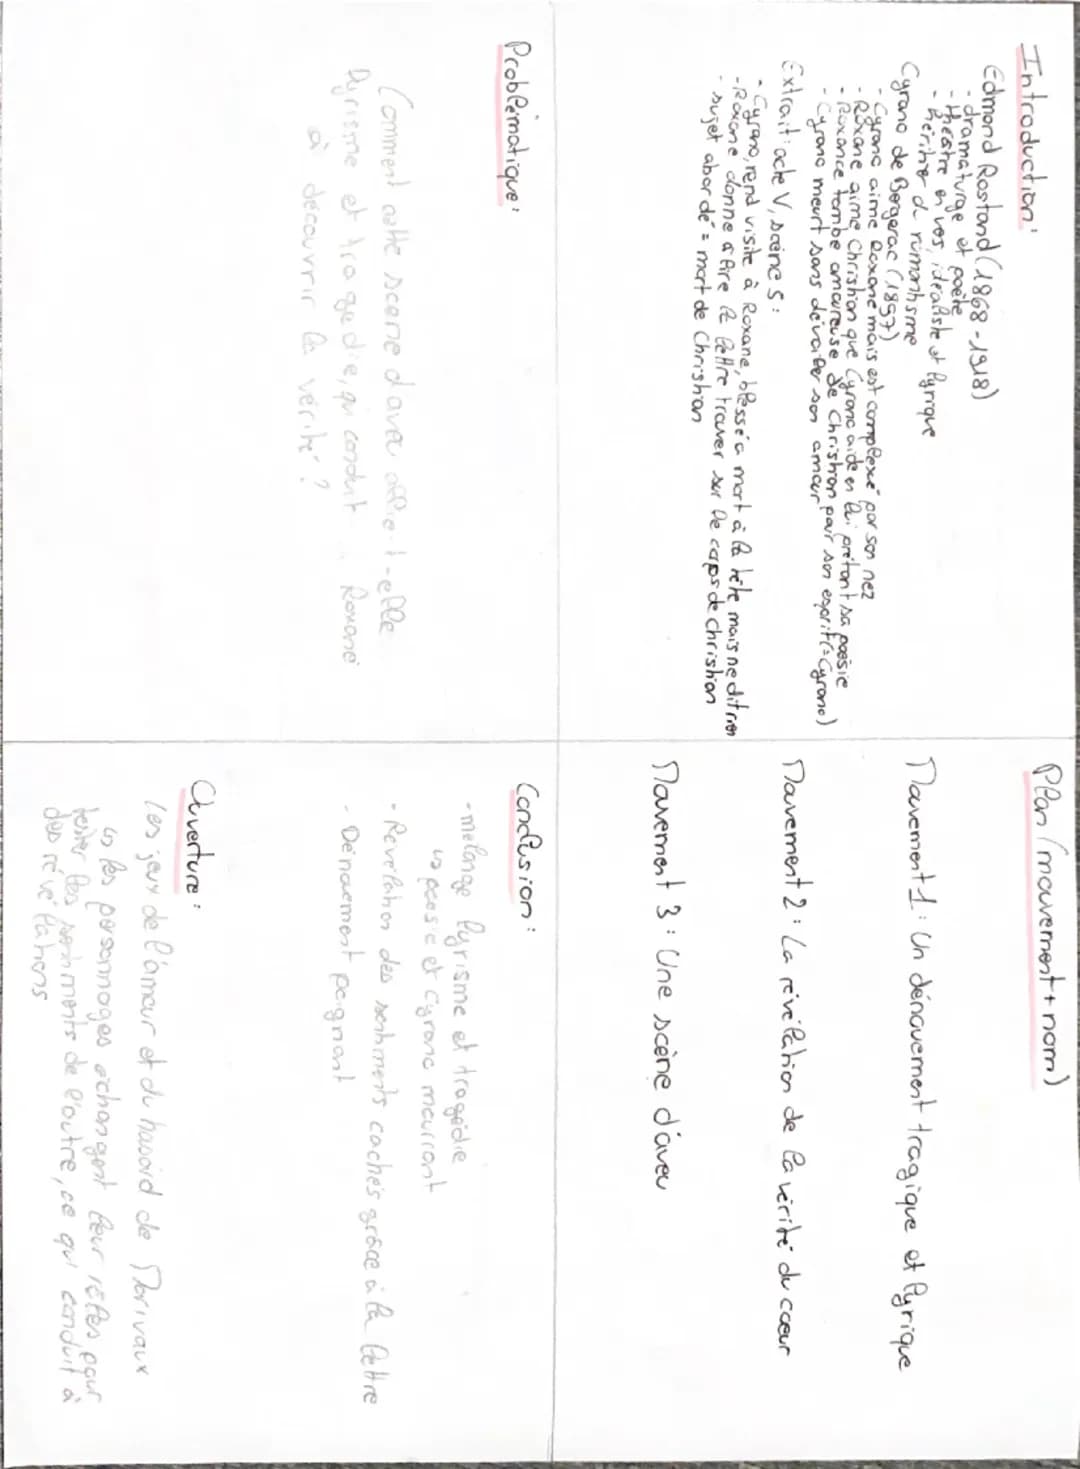 Introduction:
Edmond Rostand (1868-1918)
- dramaturge et poète
- théâtre en vers, idéaliste et lyrique
- héritier du romantisme
Cyrano de Bergerac (1897)
- Cyrano aime Roxane mais est complexé par son nez
- Roxane aime Christian que Cyrano aide en lui prêtant sa poésie
- Roxance tombe amoureuse de Christian pour son esprit (=Cyrano)
- Cyrano meurt sans dévoiler son amour
Extrait: acte V, scène 5:
- Cyrano, rend visite à Roxane, blessé a mort à la tête mais ne dit rien
- Roxane donne à lire la lettre trouver sur le corps de christian
- sujet abordé = mort de Christian
Problématique:
Comment cette scene d'aveu offre-t-elle
lyrisme et tragedie, qui conduit Roxane
à découvrir la vérité ?
Plan (mouvement + nom)
Mouvement 1: Un dénouement tragique et lyrique
Mouvement 2: La révélation de la vérité du coeur
Mouvement 3: Une scène d'aveu
Conclusion:
- mélange lyrisme et tragédie
↳ poesie et Cyrano mourront
- Révélation des sentiments cachés grâce à la lettre
- Dénouement poignant
Ouverture:
Les jeux de l'amour et du hasard de Marivaux
↳ les personnages échangent leur rôles pour
tester les sentiments de l'autre, ce qui conduit à
des révélations